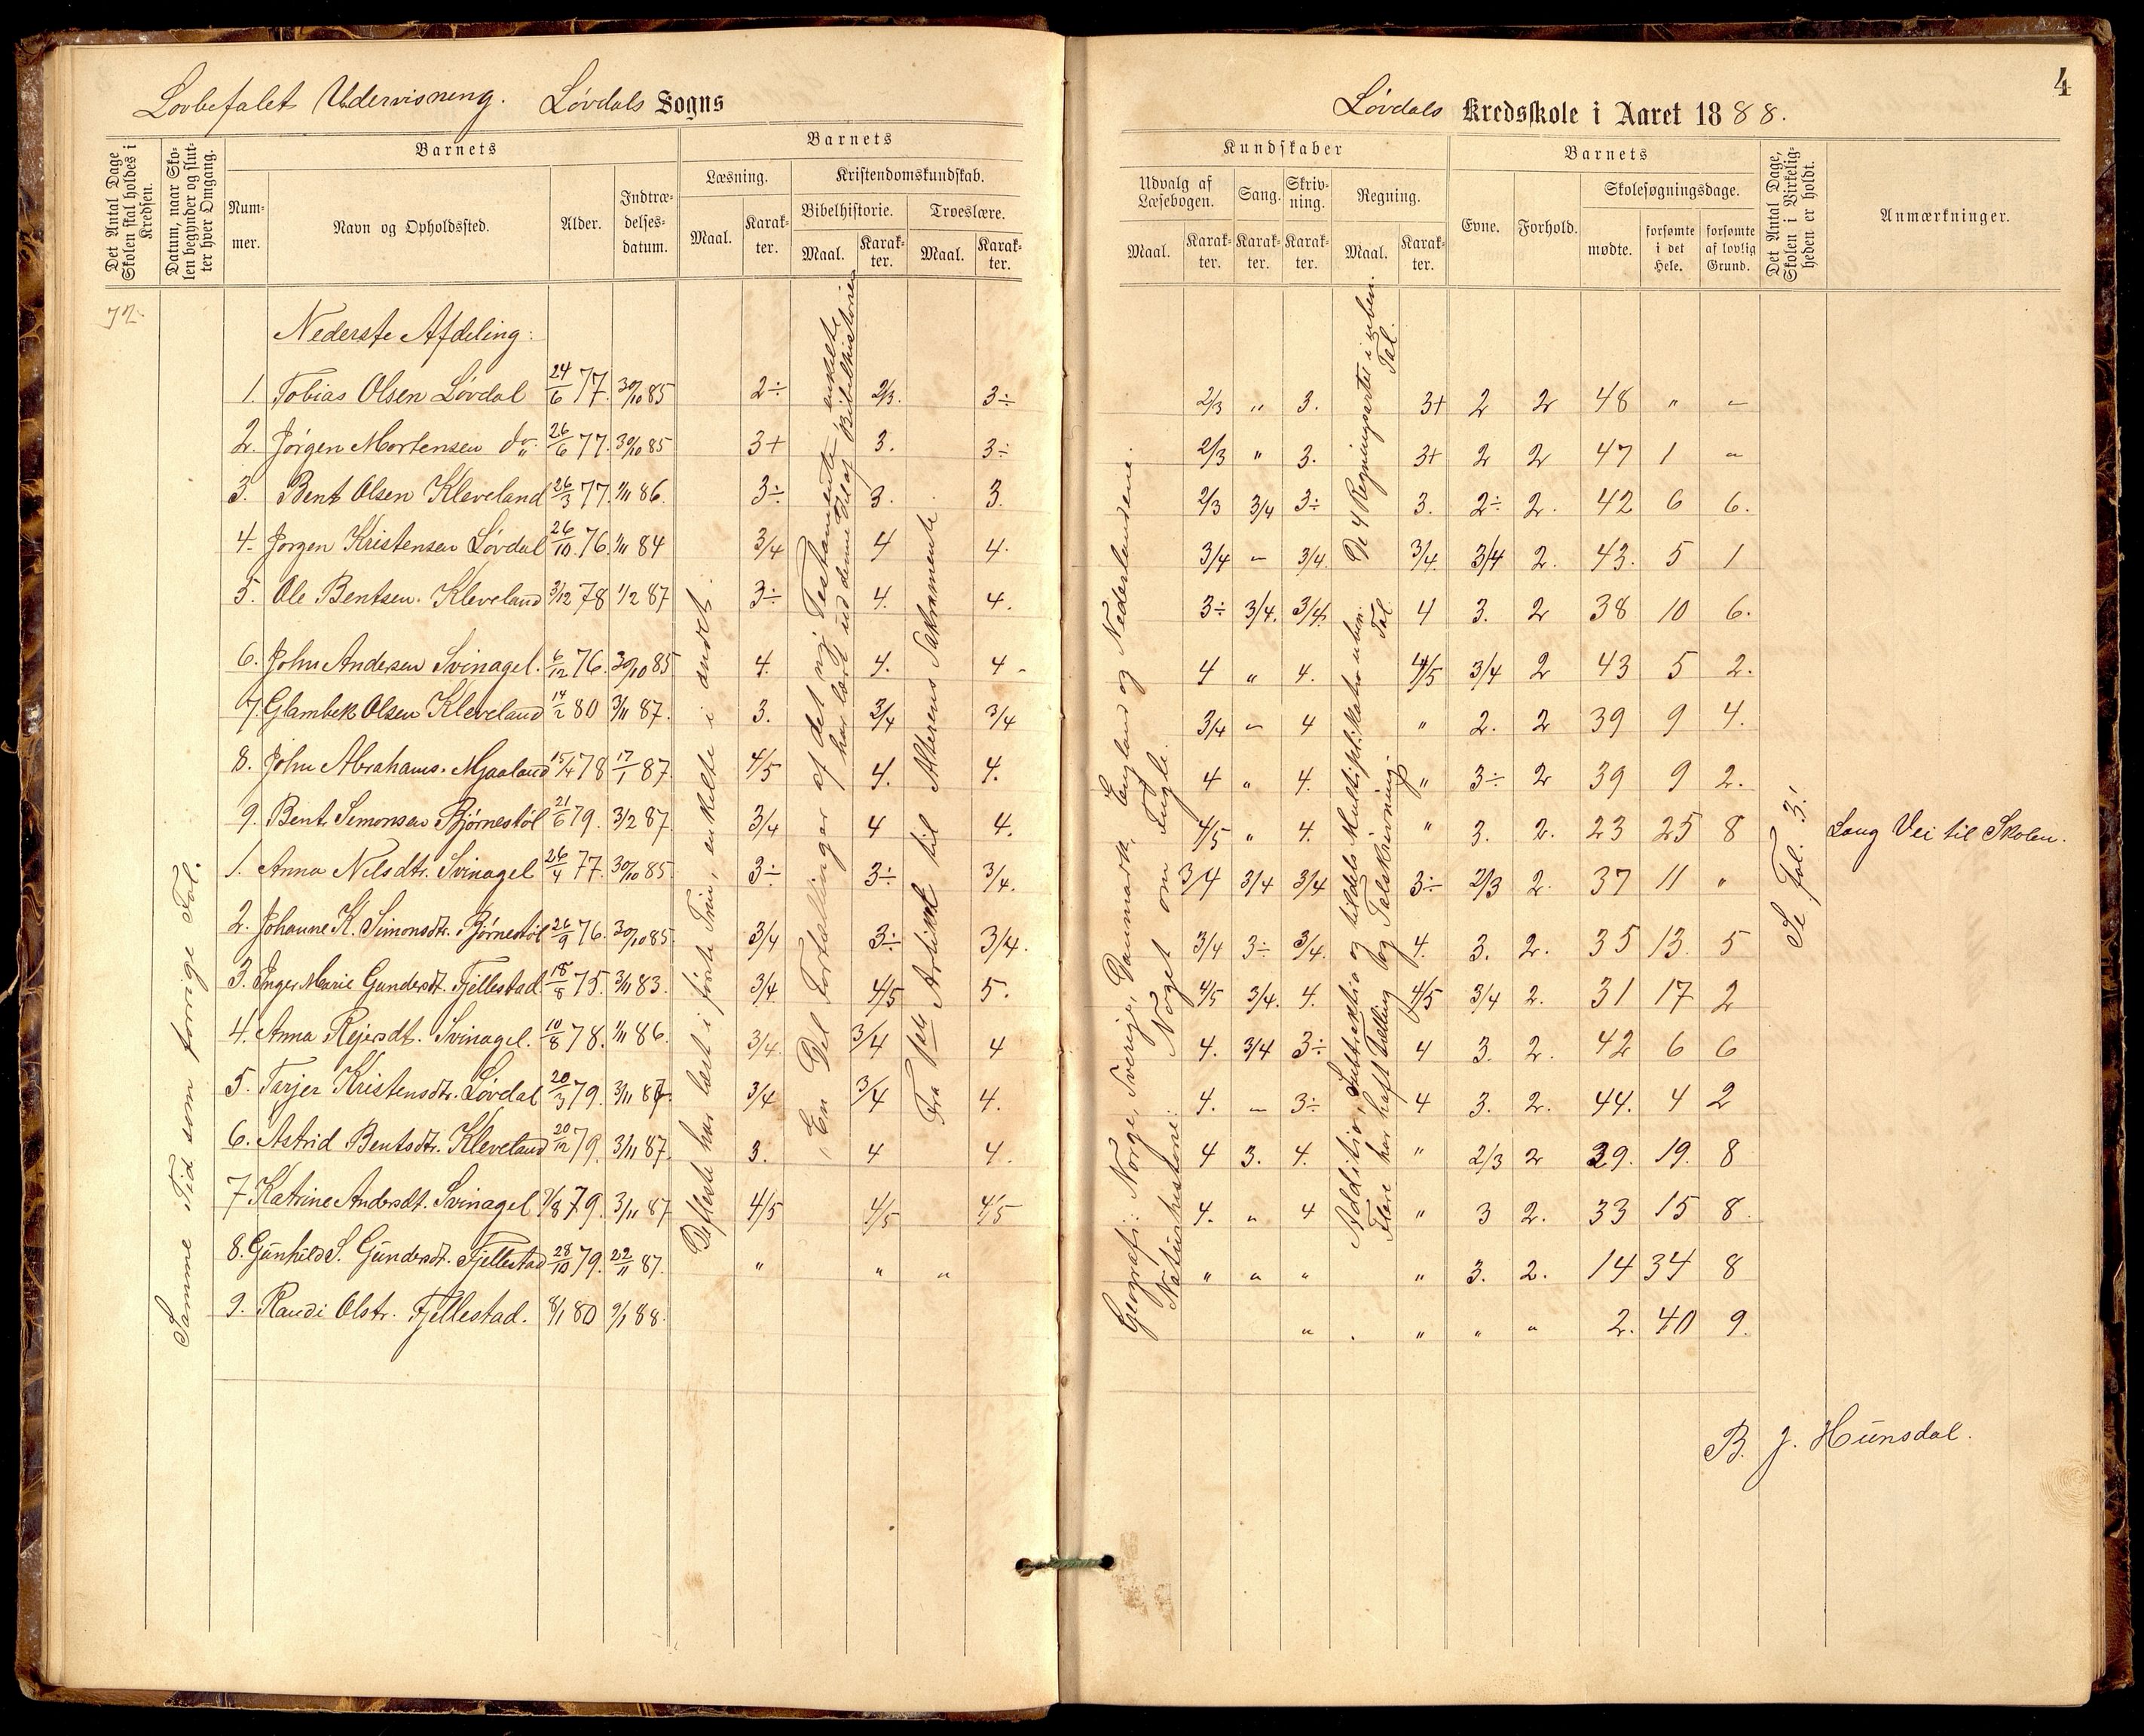 Lovbefalet Undervisning. Løvdals Sogns
Løvdals Kredsskole i Aaret 1888.
4
Det Antal Dage Skolen skal holdes i Kredsen.
Datum, naar Skolen begynder og slutter hver Omgang.
Barnets
Nummer.
Navn og Opholdssted.
Alder.
Indtrædelsesdatum.
Barnets
Læsning.
Maal.
Karakter.
Kristendomskundskab.
Bibelhistorie.
Maal.
Karakter.
Troeslære.
Maal.
Karakter.
Kundskaber
Udvalg af Læsebogen.
Maal.
Karakter.
Sang.
Karakter.
Skrivning.
Karakter.
Regning.
Maal.
Karakter.
Barnets
Evne.
Forhold.
Skolesøgningsdage.
mødte.
forsømte i det Hele.
forsømte af lovlig Grund.
Det Antal Dage, Skolen i Virkeligheden er holdt.
Anmærkninger.
72
Nederste Afdeling:
1. Tobias Olsen Løvdal 24/6 77. 30/10 85 2÷ 2/3. 3÷ 2/3 " 3. 3+ 2 2 48 " "
2. Jørgen Mortensen do. 26/6 77. 30/10 85 3+ 3. 3÷ 2/3 " 3. 3+ 2 2 47 1 "
3. Bent Olsen Kleveland 26/3 77. 1/11 86. 3÷ 3. 3. 2/3 3/4 3÷ 3. 2÷ 2. 42 6 6.
4. Jørgen Kristensen Løvdal 26/10 76. 1/11 84 3/4 4 4. 3/4 " 3/4. 3/4. 3/4 2. 43. 5 1
5. Ole Bentsen Kleveland 3/12 78 1/2 87 3÷ 4. 4. 3÷ 3/4. 3/4. 4 3. 2 38 10 6.
6. John Andersen Svinagel. 6/12 76. 30/10 85 4. 4. 4 4 " 4. 4/5 3/4 2 43 5 2.
7. Glambek Olsen Kleveland 14/2 80 3/11 87. 3. 3/4 3/4 3/4 " 4 " 2. 2 39 9 4.
8. John Abrahams. Mjaaland 15/4 78 17/1 87. 4/5 4. 4. 4 " 4. " 3÷ 2 39 9 2.
9. Bent Simonsen Bjørnestøl 21/6 79. 3/2 87. 3/4 4 4. 4/5 " 4. " 3. 2. 23 25 8 Lang Vei til Skolen.
1. Anna Nilsdtr. Svinagel 26/4 77. 30/10 85. 3÷ 3÷ 3/4. 3/4 3/4 3/4 3÷ 2/3 2. 37 11 "
2. Johanne K. Simonsdtr. Bjørnestøl 26/9 76. 30/10 85. 3/4 3÷ 3/4. 3/4 3÷ 3/4. 4. 3. 2. 35 13. 5
3. Inger Marie Gundersdt. Fjellestad. 18/8 75. 3/11 83. 3/4 4/5 5. 4/5 3/4. 4. 4/5 3/4 2. 31 17 2
4. Anna Rejersdt. Svinagel. 10/8 78. 1/11 86. 3/4. 3/4 4 4. 3/4 3÷ 4 3. 2. 42 6 6
5. Tarjer Kristensdtr. Løvdal 20/3 79. 3/11 87. 3/4 3/4 4. 4. " 3÷ 4 3. 2. 44. 4 2
6. Astrid Bentsdtr. Kleveland 20/12 79. 3/11 87. 3. 4 4. 4 3. 4. " 2/3 2 29. 19. 8
7 Katrine Andersdt. Svinagel 7/8 79. 3/11 87 4/5 4/5 4/5 4. " 4 " 3 2. 33 15 8
8. Gunhild S. Gundersdt. Fjellestad 28/10 79. 22/11 87. " " " " " " " 3. 2. 14 34 8
9. Randi Olstr. Fjellestad. 8/1 80 9/1 88. " . " " " 2. 40 9.
Samme Tid som forrige Fol.
De fleste har læst i første Trin, enkelte i andet.
En Del Fortællinger af det nye Testamente, enkelte
har læst ud denne Del af Bibelhistorien
Fra 1ste Artikel til Alterens Sakramente
Geografi: Norge, Sverige, Danmark, England og Nederlandene.
Naturhistorie: Noget om Fugle.
De 4 Regningsarter i uben. Tal.
Addition, Subtraktion og tildels Multiplikation uben. Tal.
Flere har haft Tælling og Talskrivning.
Se Fol. 3!
B. J. Hunsdal.